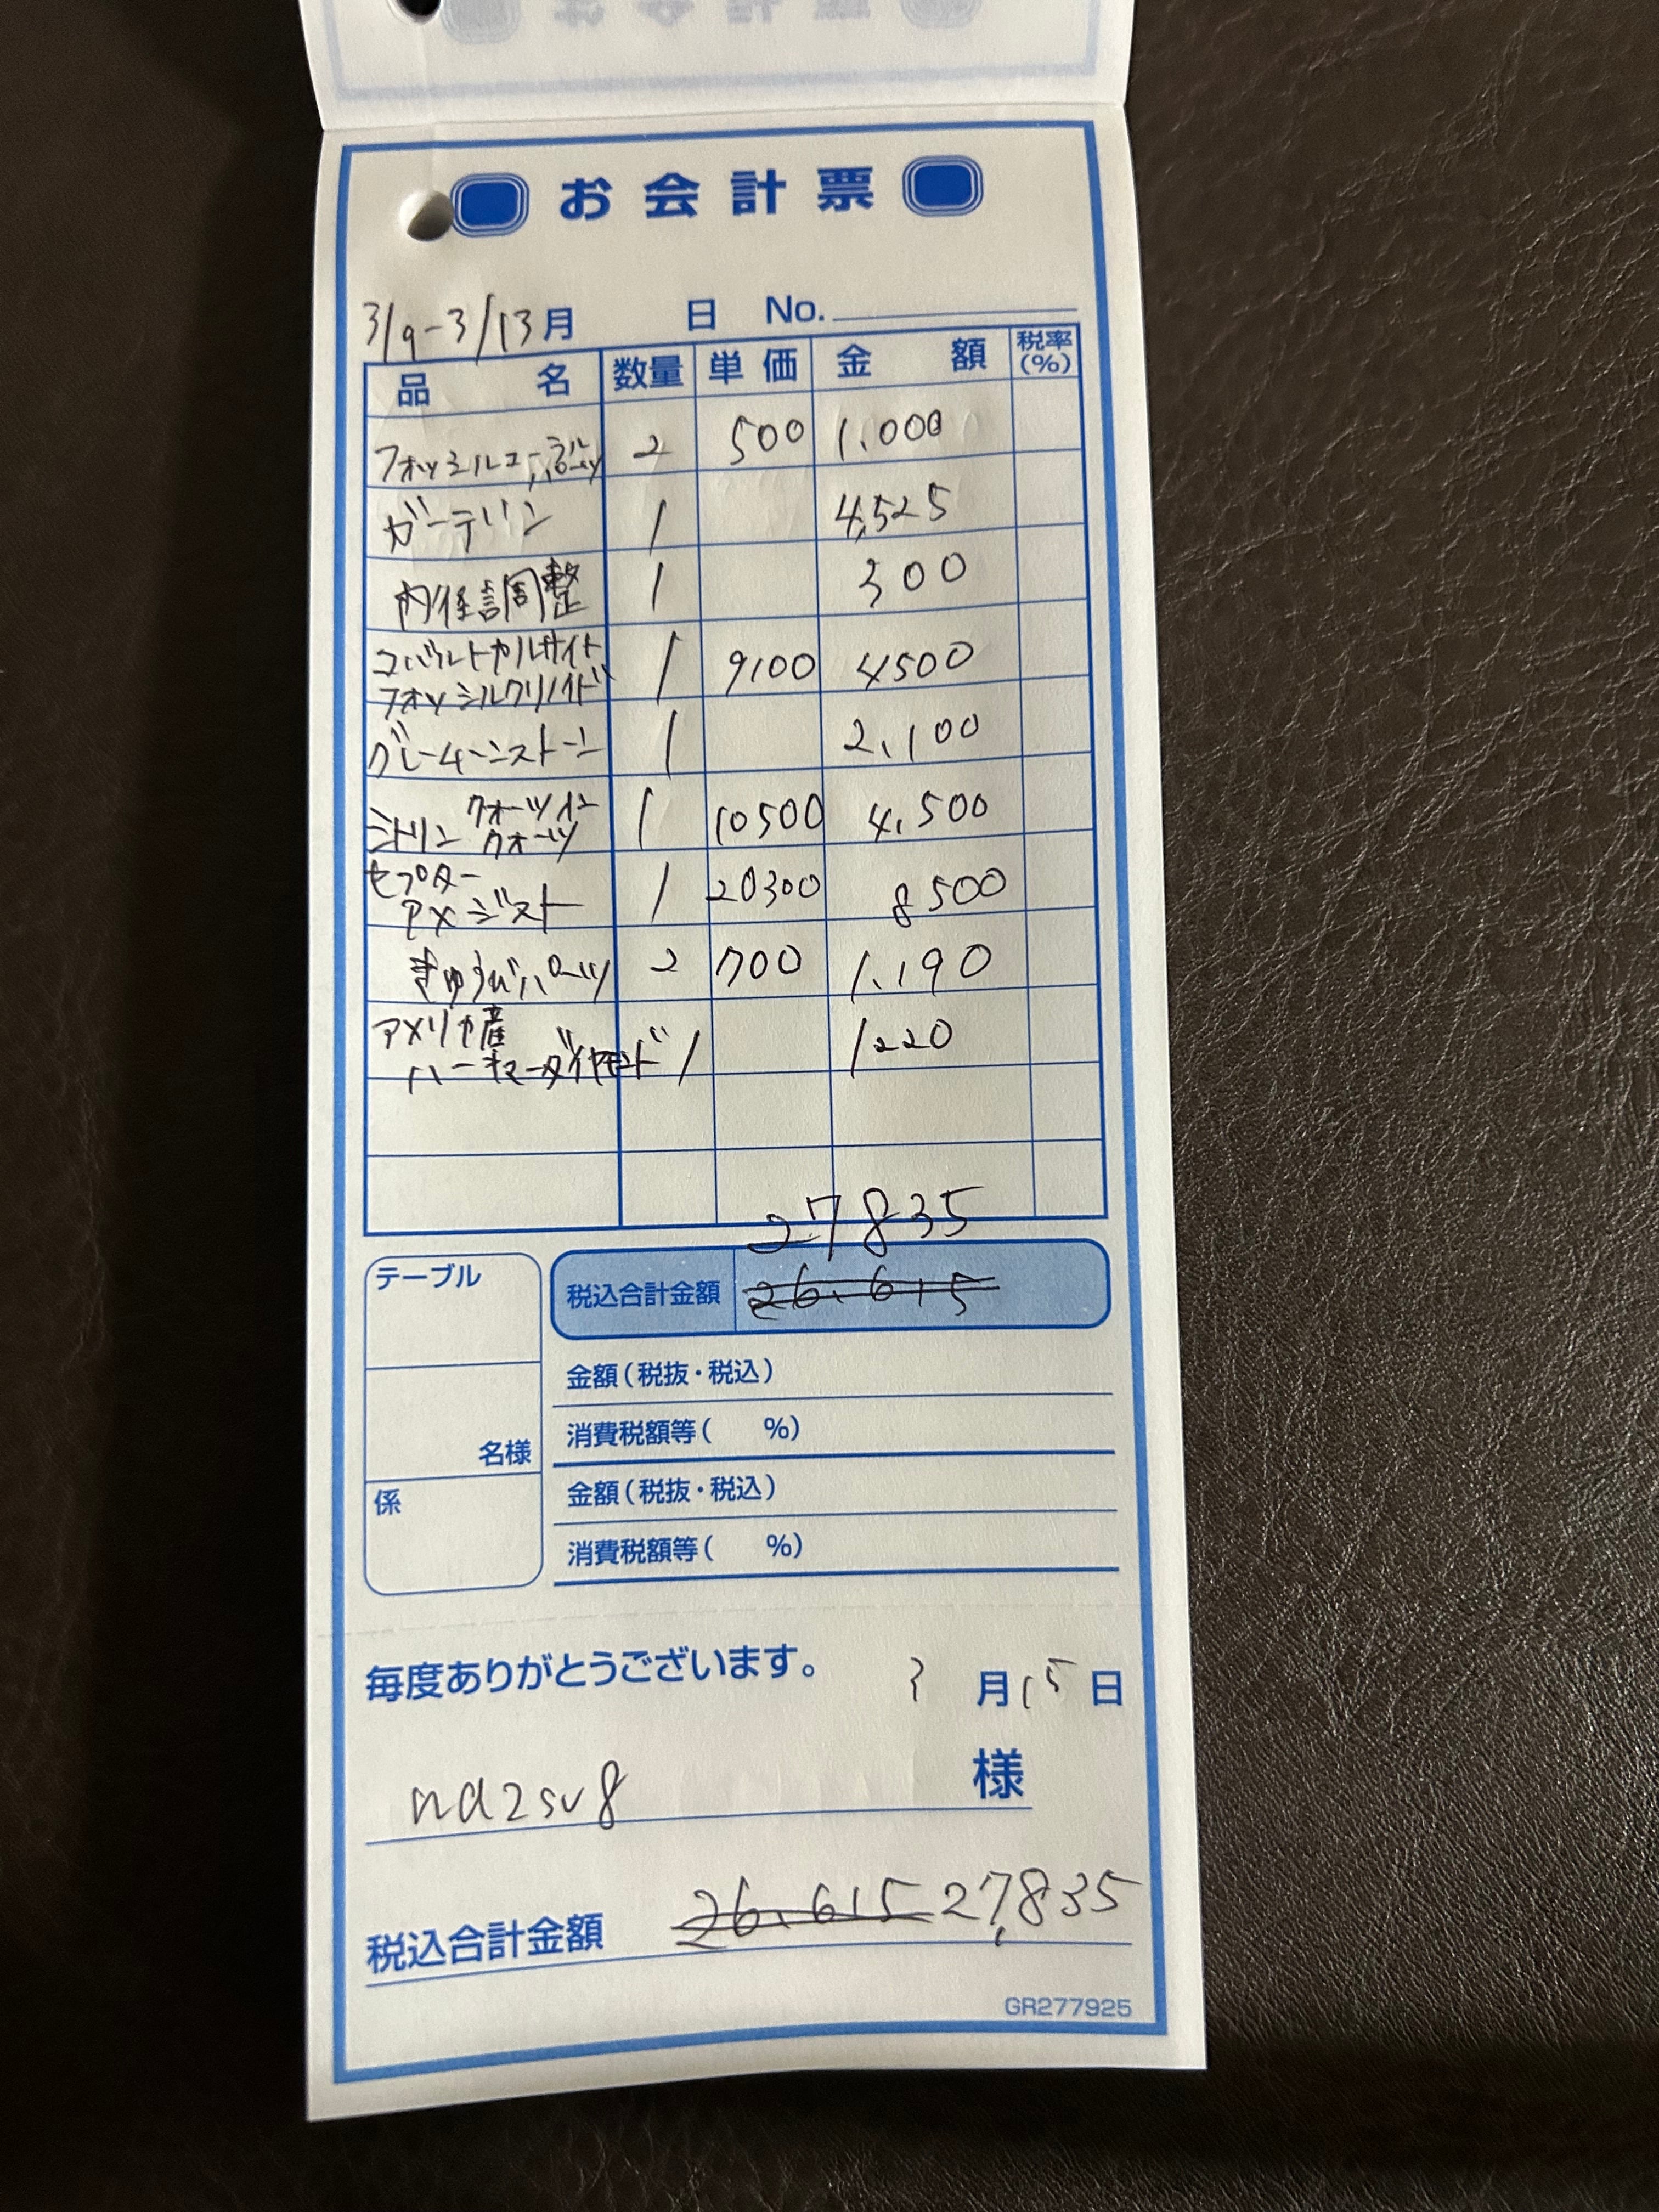 お会計票
3/9-3/13月 日 No.
品名 数量 単価 金額 税率(%)
フォッシルコーラル 2 500 1,000
パーツ
ガーデリン 1 4,525
内径調整 1 300
コバルトカルサイト
フォッシルクリノイド 1 9100 4500
グレームーンストーン 1 2,100
クォーツイン
シトリン クォーツ 1 10500 4,500
セプター
アメジスト 1 20300 8500
きゅうびパーツ 2 700 1,190
アメリカ産
ハーキマーダイヤモンド 1 1220
27835
テーブル
税込合計金額 26,615
金額(税抜・税込)
消費税額等( %)
名様
金額(税抜・税込)
係
消費税額等( %)
毎度ありがとうございます。 3月15日
nd2sv8 様
税込合計金額 26,615 27,835
GR277925